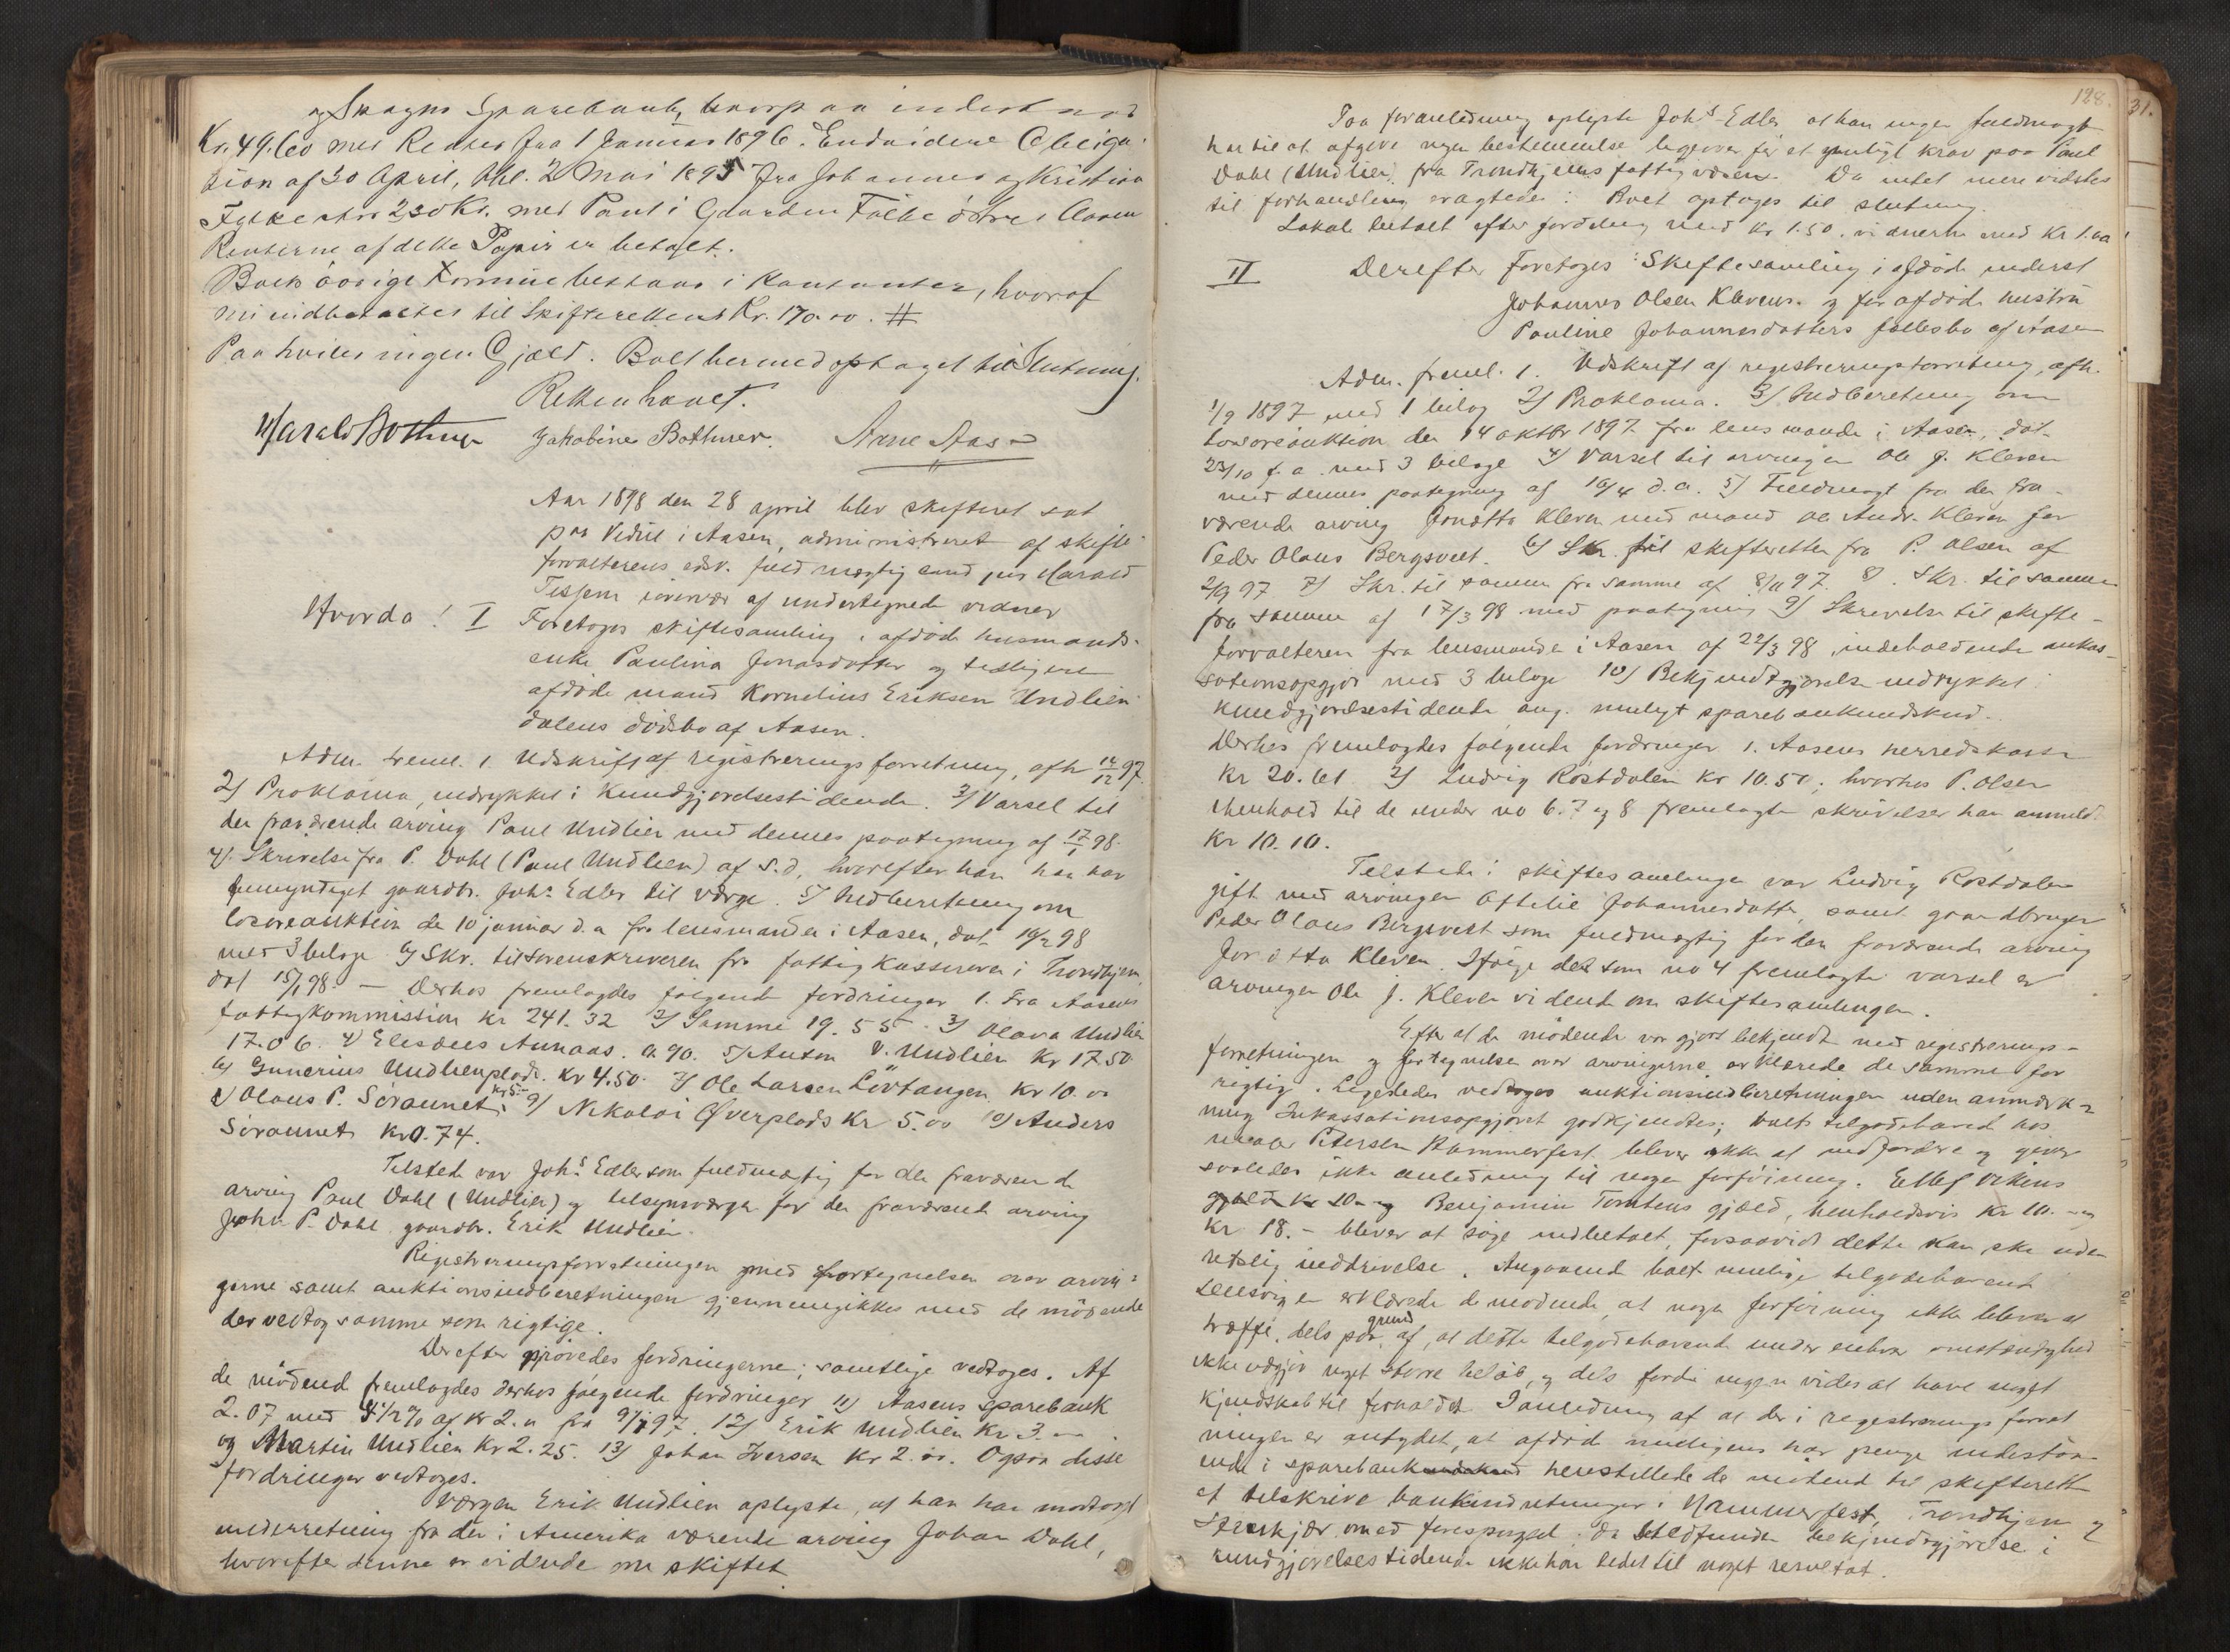 og Skogns Sparebank, hvorpaa indestaar
Kr. 49.60 med Renter fra 1 Januar 1896. Endvidere Obliga-
tion af 30 April, thl. 2 Mai 1895 fra Johannes og Kristian
230 Kr. med Pant i Gaarden Falbe i Aasen
Renterne af dette Papir er betalt.
Boets övrige Formue bestaar i Kontanter, hvoraf
nu indbetaltes til Skifteretten Kr. 170.00. #
Paa hviler ingen Gjæld. Boet hermed optaget til Slutning.
Retten hævet.
Harald Bothner Jakobine Bothner. Arne Aas
Aar 1898 den 28 april blev skifteret sat
paa Vedul i Aasen, administreret af skifte-
forvalterens edsv. fuldmægtig cand jur Harald
Tessem i overvær af undertegnede vidner
Hvorda! I Foretoges skiftesamling i afdöde husmands-
enke Paulina Jonasdatter og tidligere
afdöde mand Kornelius Eriksen Undlien
dalens dödsbo af Aasen.
Adm. freml. 1. Udskrift af registreringsforretning, afh 14/12 97.
2) Proklama, indrykket i Kundgjørelsestidende. 3) Varsel til
den fraværende arving Paul Undlien med dennes paategning af 17/1 98.
4) Skrivelse fra P. Dahl (Paul Undlien) af s.d, hvorefter han har
bemyndiget gaardbr. Johs Edler til værge. 5) Indberetning om
lösöreauktion den 10 januar d.a fra lensmanden i Aasen, dat 19/2 98
med 3 bilage 6) Skr. til Sorenskriveren fra fattigkassereren i Trondhjem,
dat 15/1 98. — Derhos fremlagdes følgende fordringer 1. Fra Aasens
fattigkommission kr 241.32 2) Samme 19.55. 3) Olava Undlien
17.06. 4) Elisæus Aunaas. 0.90. 5) Anton V. Undlien Kr 17.50
6) Gunerius Undlienplads. Kr 4.50. 7) Ole Larsen Lövtangen Kr 10.00
8) Olaus P. Søraunet kr 5.- 9) Nikolai Øverplads Kr 5.00 10) Anders
Söraunet kr 0.74.
Tilstede var Johs Edler som fuldmægtig for den fraværende
arving Paul Dahl (Undlien) og tilsynsværge for den fraværende arving
John P. Dahl gaardbr. Erik Undlien.
Registreringsforretningen med fortegnelsen over arvin-
gerne samt auktionsindberetningen gjennemgikkes med de mödende
der vedtog samme som rigtige.
Derefter prövedes fordringerne; samtlige vedtoges. Af
de mödende fremlagdes derhos følgende fordringer 11) Aasens sparebank
2.07 med 4½% af kr 2.00 fra 9/7 97. 12) Erik Undlien Kr 3.00
og Martin Undlien Kr 2.25. 13) Johan Iversen Kr 2.00. Ogsaa disse
fordringer vedtoges.
Værgen Erik Undlien oplyste, at han har modtaget
underretning fra den i Amerika værende arving Johan Dahl,
hvorefter denne er vidende om skiftet
128.
31.
Paa foranledning oplyste Johs Edler at han ingen fuldmagt
har til at afgive nogen bestemmelse ligeover for et muligt krav paa Paul
Dahl (Undlien) fra Trondhjems fattigvæsen. Da intet mere vidstes
til forhandling eragtedes: Boet optages til slutning.
Lokale betalt efter fordeling med kr 1.50. vidnerne med Kr 1.00
II Derefter Foretoges Skiftesamling i afdöde inderst
Johannes Olsen Klevens og for afdöde hustru
Pauline Johannesdatters fællesbo af Aasen
Adm. freml. 1. Udskrift af registreringsforretning, afh.
1/9 1897 med 1 bilag 2) Proklama. 3) Indberetning om
Lösöreauktion den 14 oktbr 1897 fra lensmanden i Aasen, dat
23/10 f.a. med 3 bilage 4) Varsel til arvingen Ole J. Kleven
med dennes paategning af 16/4 d.a. 5) Fuldmagt fra den fra-
værende arving Jonetta Kleven med mand Ole Andr. Kleven for
Peder Olaus Bergsvedt. 6) Skr. til skifteretten fra P. Olsen af
2/9 97 7) Skr. til samme fra samme af 8/11 97. 8). Skr. til samme
fra samme af 17/3 98 med paategning 9) Skrivelse til skifte-
forvalteren fra lensmanden i Aasen af 22/3 98, indeholdende inkas-
sationsopgjör med 3 bilage 10) Bekjendtgjørelse indrykket i
Kundgjørelsestidende ang. muligt sparebankindskud.
Derhos fremlagdes følgende fordringer 1. Aasens herredskasse
Kr 20.61 2) Ludvig Röstdalen kr 10.50; hvorhos P. Olsen
i henhold til de under no 6. 7 og 8 fremlagte skrivelser har anmeldt
Kr 10.10.
Tilstede i skiftesamlingen var Ludvig Röstdalen
gift med arvingen Ottilie Johannesdatter, samt gaardbruger
Peder Olaus Bergsvedt som fuldmægtig for den fraværende arving
Jonetta Kleven. Ifölge det som no 4 fremlagte varsel er
arvingen Ole J. Kleven vidende om skiftesamlingen.
Efter at de mödende var gjort bekjendt med registrerings-
forretningen og fortegnelsen over arvingerne erklærede de samme for
rigtig. Ligeledes vedtoges auktionsindberetningen uden anmærk-
ning Inkassationsopgjöret godkjendtes; boets tilgodehavend hos
Petersen Hammerfest bliver ikke at indfordre og giver
saaledes ikke anledning til nogen forföining. Ellef Vikens
gjæld kr 10.- og Benjamin Tomtens gjæld, henholdsvis Kr 10.- og
Kr 18.- bliver at söge indbetalt, forsaavidt dette kan ske uden
retslig inddrivelse. Angaaende boets mulige tilgodehavende
erklærede de mödende, at nogen forföining ikke bliver at
træffe, dels paa grund af, at dette tilgodehavende under enhver omstændighed
ikke udgjör noget större belöb, og dels fordi ingen vides at have noget
kjendskab til forholdet. I anledning af at der i registreringsforret
ningen er antydet, at afdöde muligens har penge indestaa-
ende i sparebank henstillede de mödende til skifteretten
at tilskrive bankindretninger i Hammerfest, Trondhjem og
Stenkjær med forespørgsel. Da stedfunden bekjendtgjörelse i
kundgjørelsestidende ikke har ledet til noget resultat.